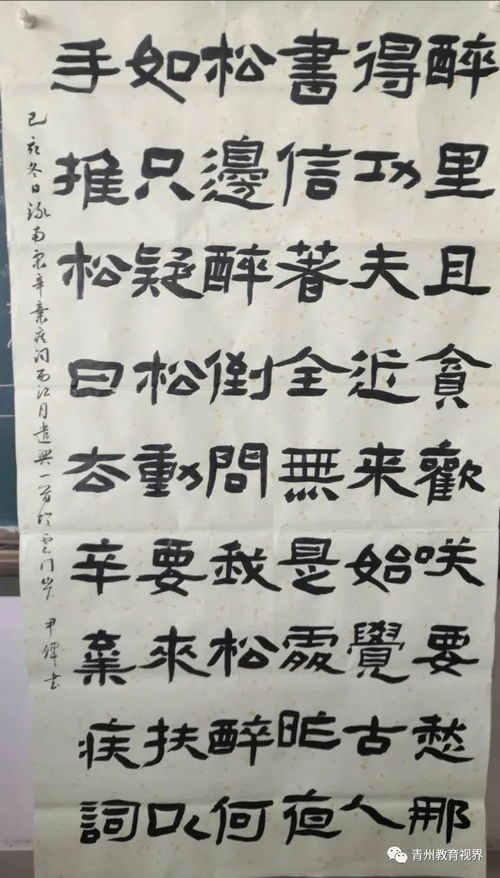 醉里且貪歡咲要愁那
得功夫近来始覺古人
書信著全無是處昨夜
松邊醉倒問我松醉何
如只疑松動要來扶以
手推松曰去辛棄疾詞
己亥冬日录南宋辛棄疾词西江月遣興一首於云门 尹 书
青州教育视界